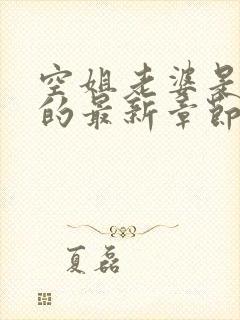 空姐老婆是
的最新章節
夏磊